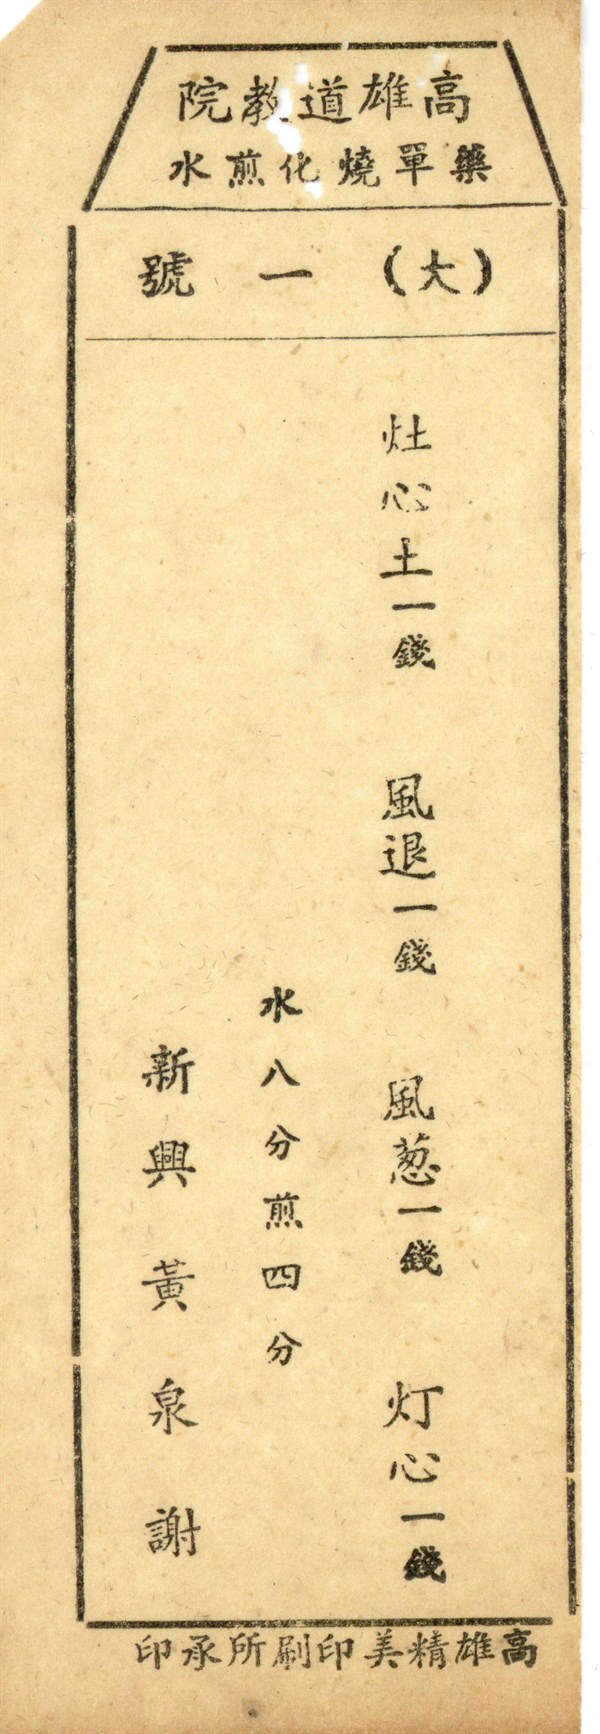 高雄道教院
藥單燒化煎水
(大)一號
灶心土一錢 風退一錢 風葱一錢 灯心一錢
水八分煎四分
新興黃泉謝
高雄精美印刷所承印